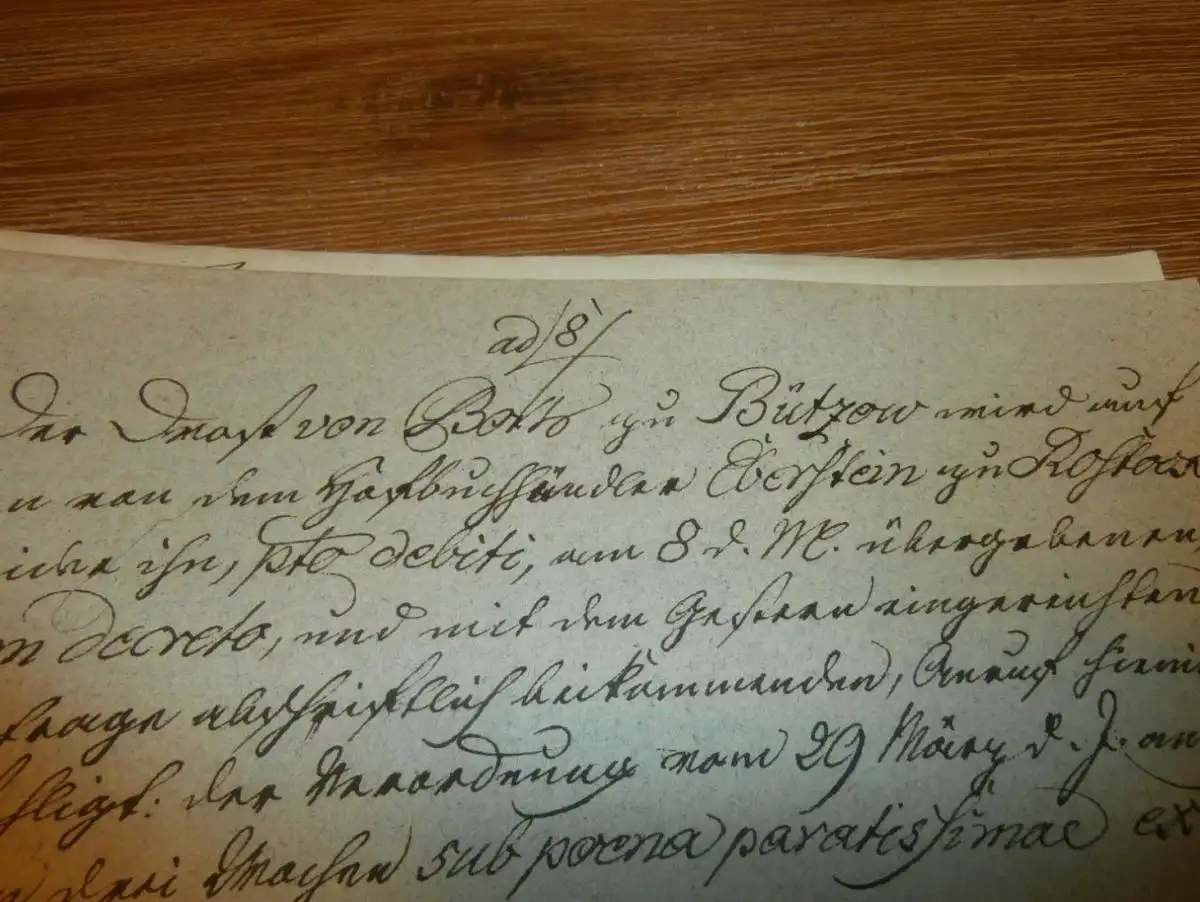 ad /8/
Der Drost von Both zu Bützow wird auf
von dem Hofbuchhändler Eberstein zu Rostock
ihn, pto debiti, am 8 d. M. übergebenen,
decreto, und mit dem Gestern eingereichten
trage abschriftlich beikommenden, Anruf hiemi
der Verordnung vom 29 März d. J. an
drei Wochen sub poena paratissimae ex